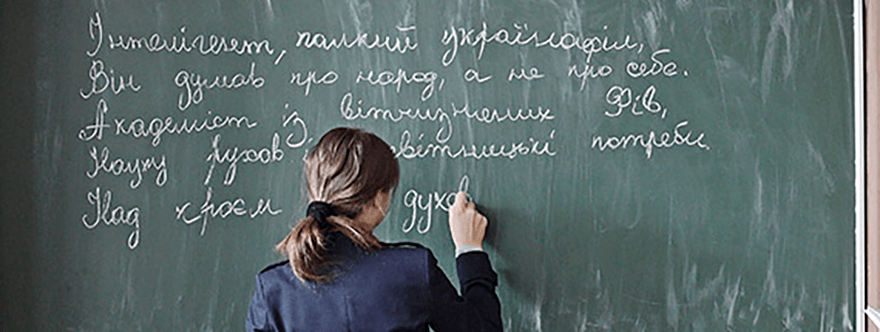 Інтелігент, палкий українофіл,
Він думав про народ, а не про себе.
Академіст із вітчизняних Фів,
Науку рухав світницькі потреби.
Над краєм духо